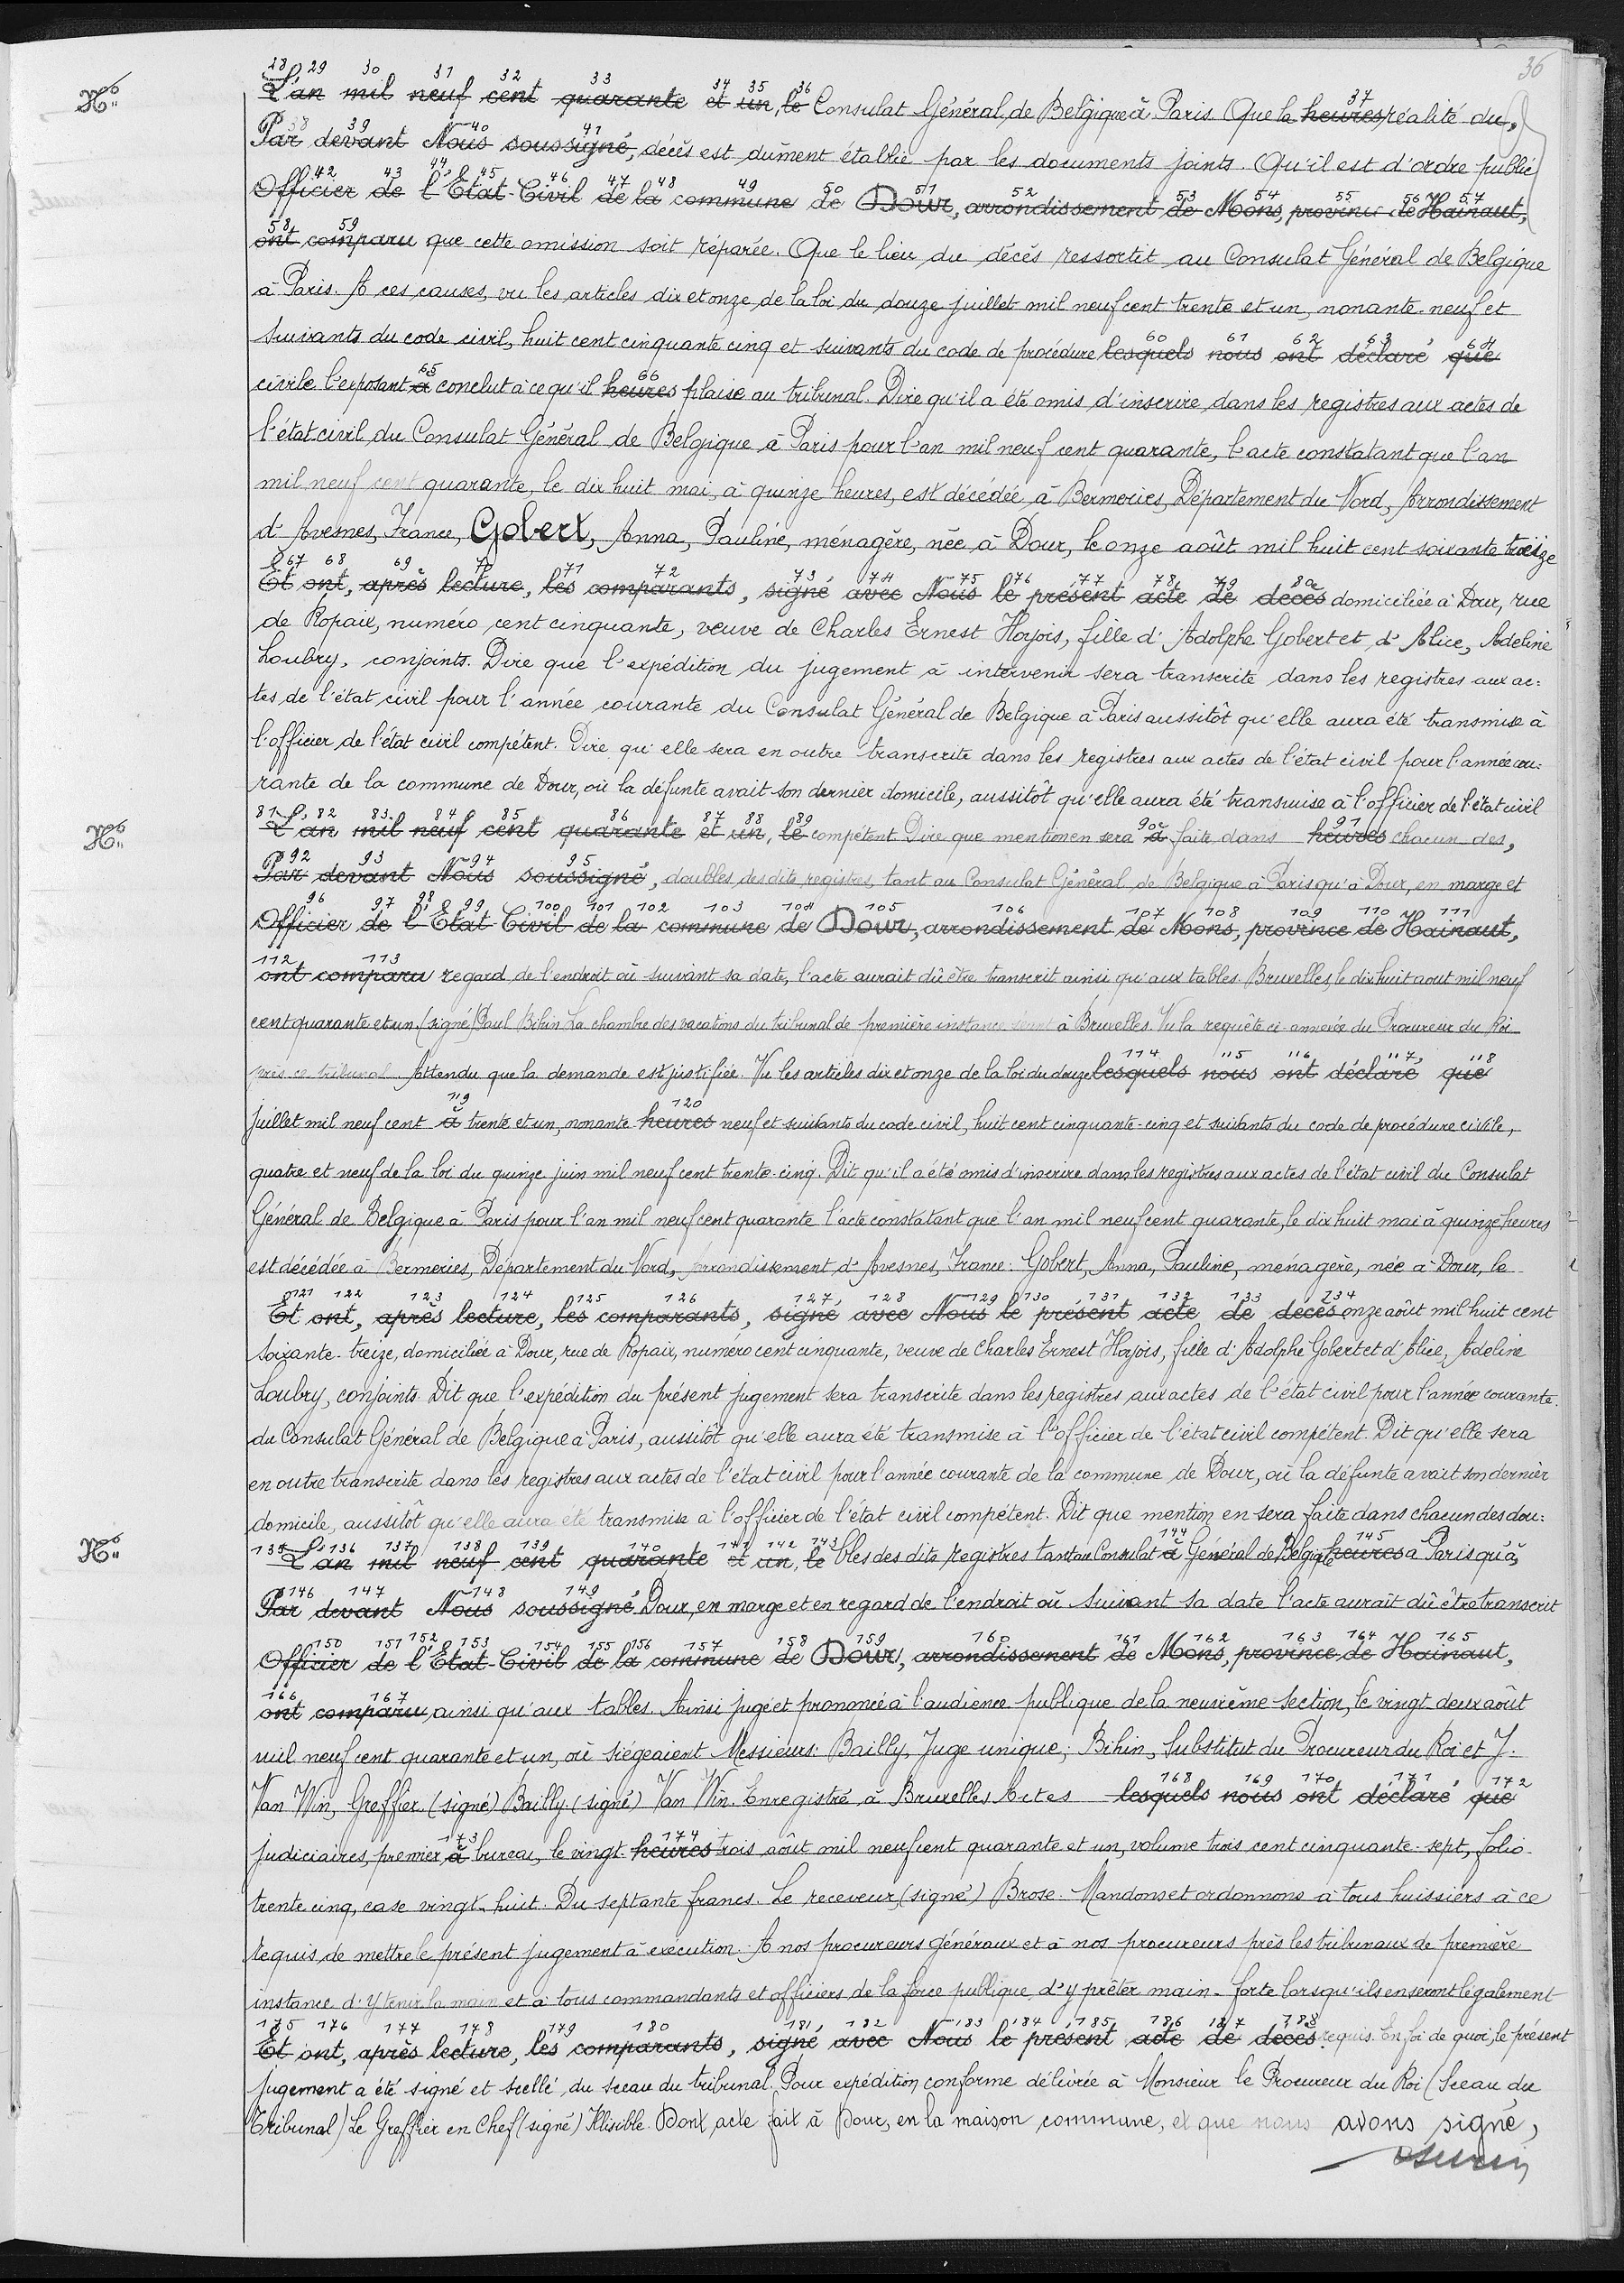 36
28 29 30 31 32 33 34 35 36 37
N° L'an mil neuf cent quarante et un, le Consulat Général de Belgique à Paris. Que la heures réalité du
38 39 40 41
Par devant Nous soussigné, décès est dûment établie par les documents joints. Qu'il est d'ordre public
42 43 44 45 46 47 48 49 50 51 52 53 54 55 56 57
Officier de l'Etat-Civil de la commune de Dour, arrondissement de Mons, province de Hainaut,
58 59
ont comparu que cette omission soit réparée. Que le lieu du décès ressortit au Consulat Général de Belgique
à Paris. A ces causes, vu les articles dix et onze de la loi du douze juillet mil neuf cent trente et un, nonante-neuf et
60 61 62 63 64
suivants du code civil, huit cent cinquante cinq et suivants du code de procédure lesquels nous ont déclaré que
65 66
civile l'exposant à conclut à ce qu'il heures plaise au tribunal. Dire qu'il a été omis d'inscrire dans les registres aux actes de
l'état civil du Consulat Général de Belgique à Paris pour l'an mil neuf cent quarante, l'acte constatant que l'an
mil neuf cent quarante, le dix huit mai, à quinze heures, est décédée à Bermeries, Département du Nord, Arrondissement
d'Avesnes, France, Gobert, Anna, Pauline, ménagère, née à Dour, le onze août mil huit cent soixante treize
67 68 69 70 71 72 73 74 75 76 77 78 79 80
Et ont, après lecture, les comparants, signé avec Nous le présent acte de décès domiciliée à Dour, rue
de Ropaix, numéro cent cinquante, veuve de Charles Ernest Horjois, fille d'Adolphe Gobert et d'Alice, Adeline
Loubry, conjoints. Dire que l'expédition du jugement à intervenir sera transcrite dans les registres aux ac:
tes de l'état civil pour l'année courante du Consulat Général de Belgique à Paris aussitôt qu'elle aura été transmise à
l'officier de l'état civil compétent. Dire qu'elle sera en outre transcrite dans les registres aux actes de l'état civil pour l'année cou:
rante de la commune de Dour, où la défunte avait son dernier domicile, aussitôt qu'elle aura été transmise à l'officier de l'état civil
81 82 83 84 85 86 87 88 89 90 91
N° L'an mil neuf cent quarante et un, le compétent Dire que mention en sera à faite dans heures chacun des,
92 93 94 95
Par devant Nous soussigné, doubles desdits registres, tant au Consulat Général de Belgique à Paris qu'à Dour, en marge et
96 97 98 99 100 101 102 103 104 105 106 107 108 109 110 111
Officier de l'Etat-Civil de la commune de Dour, arrondissement de Mons, province de Hainaut,
112 113
ont comparu regard de l'endroit où suivant sa date, l'acte aurait dû être transcrit ainsi qu'aux tables. Bruxelles, le dix huit aout mil neuf
cent quarante et un. (signé) Paul Bihin. La chambre des vacations du tribunal de première instance séant à Bruxelles. Vu la requête ci-annexée du Procureur du Roi
114 115 116 117 118
près ce tribunal. Attendu que la demande est justifiée. Vu les articles dix et onze de la loi du douze lesquels nous ont déclaré que
119 120
juillet mil neuf cent à trente et un, nonante heures neuf et suivants du code civil, huit cent cinquante-cinq et suivants du code de procédure civile,
quatre et neuf de la loi du quinze juin mil neuf cent trente-cinq. Dit qu'il a été omis d'inscrire dans les registres aux actes de l'état civil du Consulat
Général de Belgique à Paris pour l'an mil neuf cent quarante l'acte constatant que l'an mil neuf cent quarante, le dix huit mai à quinze heures
est décédée à Bermeries, Département du Nord, Arrondissement d'Avesnes, France: Gobert, Anna, Pauline, ménagère, née à Dour, le
121 122 123 124 125 126 127 128 129 130 131 132 133 134
Et ont, après lecture, les comparants, signé avec Nous le présent acte de décès onze août mil huit cent
soixante-treize, domiciliée à Dour, rue de Ropaix, numéro cent cinquante, veuve de Charles Ernest Horjois, fille d'Adolphe Gobert et d'Alice, Adeline
Loubry, conjoints. Dit que l'expédition du présent jugement sera transcrite dans les registres aux actes de l'état civil pour l'année courante.
du Consulat Général de Belgique à Paris, aussitôt qu'elle aura été transmise à l'officier de l'état civil compétent. Dit qu'elle sera
en outre transcrite dans les registres aux actes de l'état civil pour l'année courante de la commune de Dour, où la défunte avait son dernier
domicile, aussitôt qu'elle aura été transmise à l'officier de l'état civil compétent. Dit que mention en sera faite dans chacun des dou:
135 136 137 138 139 140 141 142 143 144 145
N° L'an mil neuf cent quarante et un, le bles des dits registres tant au Consulat à Général de Belgique heures à Paris qu'à
146 147 148 149
Par devant Nous soussigné Dour, en marge et en regard de l'endroit où suivant sa date l'acte aurait dû être transcrit
150 151 152 153 154 155 156 157 158 159 160 161 162 163 164 165
Officier de l'Etat-Civil de la commune de Dour, arrondissement de Mons, province de Hainaut,
166 167
ont comparu ainsi qu'aux tables. Ainsi jugé et prononcé à l'audience publique de la neuvième section, le vingt deux août
mil neuf cent quarante et un, où siégeaient Messieurs: Bailly, Juge unique; Bihin, Substitut du Procureur du Roi et J.
168 169 170 171 172
Van Win, Greffier (signé) Bailly (signé) Van Win. Enregistré à Bruxelles Actes lesquels nous ont déclaré que
173 174
judiciaires, premier à bureau, le vingt-heures trois août mil neuf cent quarante et un, volume trois cent cinquante-sept, folio
trente cinq, case vingt-huit. Du septante francs. Le receveur, (signé) Brose. Mandons et ordonnons à tous huissiers à ce
requis de mettre le présent jugement à exécution. A nos procureurs généraux et à nos procureurs près les tribunaux de première
instance d'y tenir la main et à tous commandants et officiers de la force publique d'y prêter main-forte lorsqu'ils en seront légalement
175 176 177 178 179 180 181 182 183 184 185 186 187 188
Et ont, après lecture, les comparants, signé avec Nous le présent acte de décès. requis. En foi de quoi, le présent
jugement a été signé et scellé du sceau du tribunal. Pour expédition conforme délivrée à Monsieur le Procureur du Roi (Sceau du
Tribunal) Le Greffier en Chef (signé) Illisible. Dont acte fait à Dour, en la maison commune, et que nous avons signé,